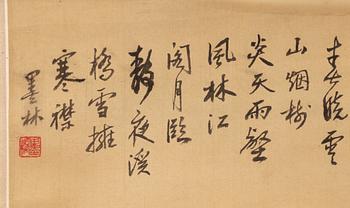 春曉雲
山烟樹
炎天雨壑
風林江
閣月臨
静夜溪
橋雪擁
寒襟
墨林